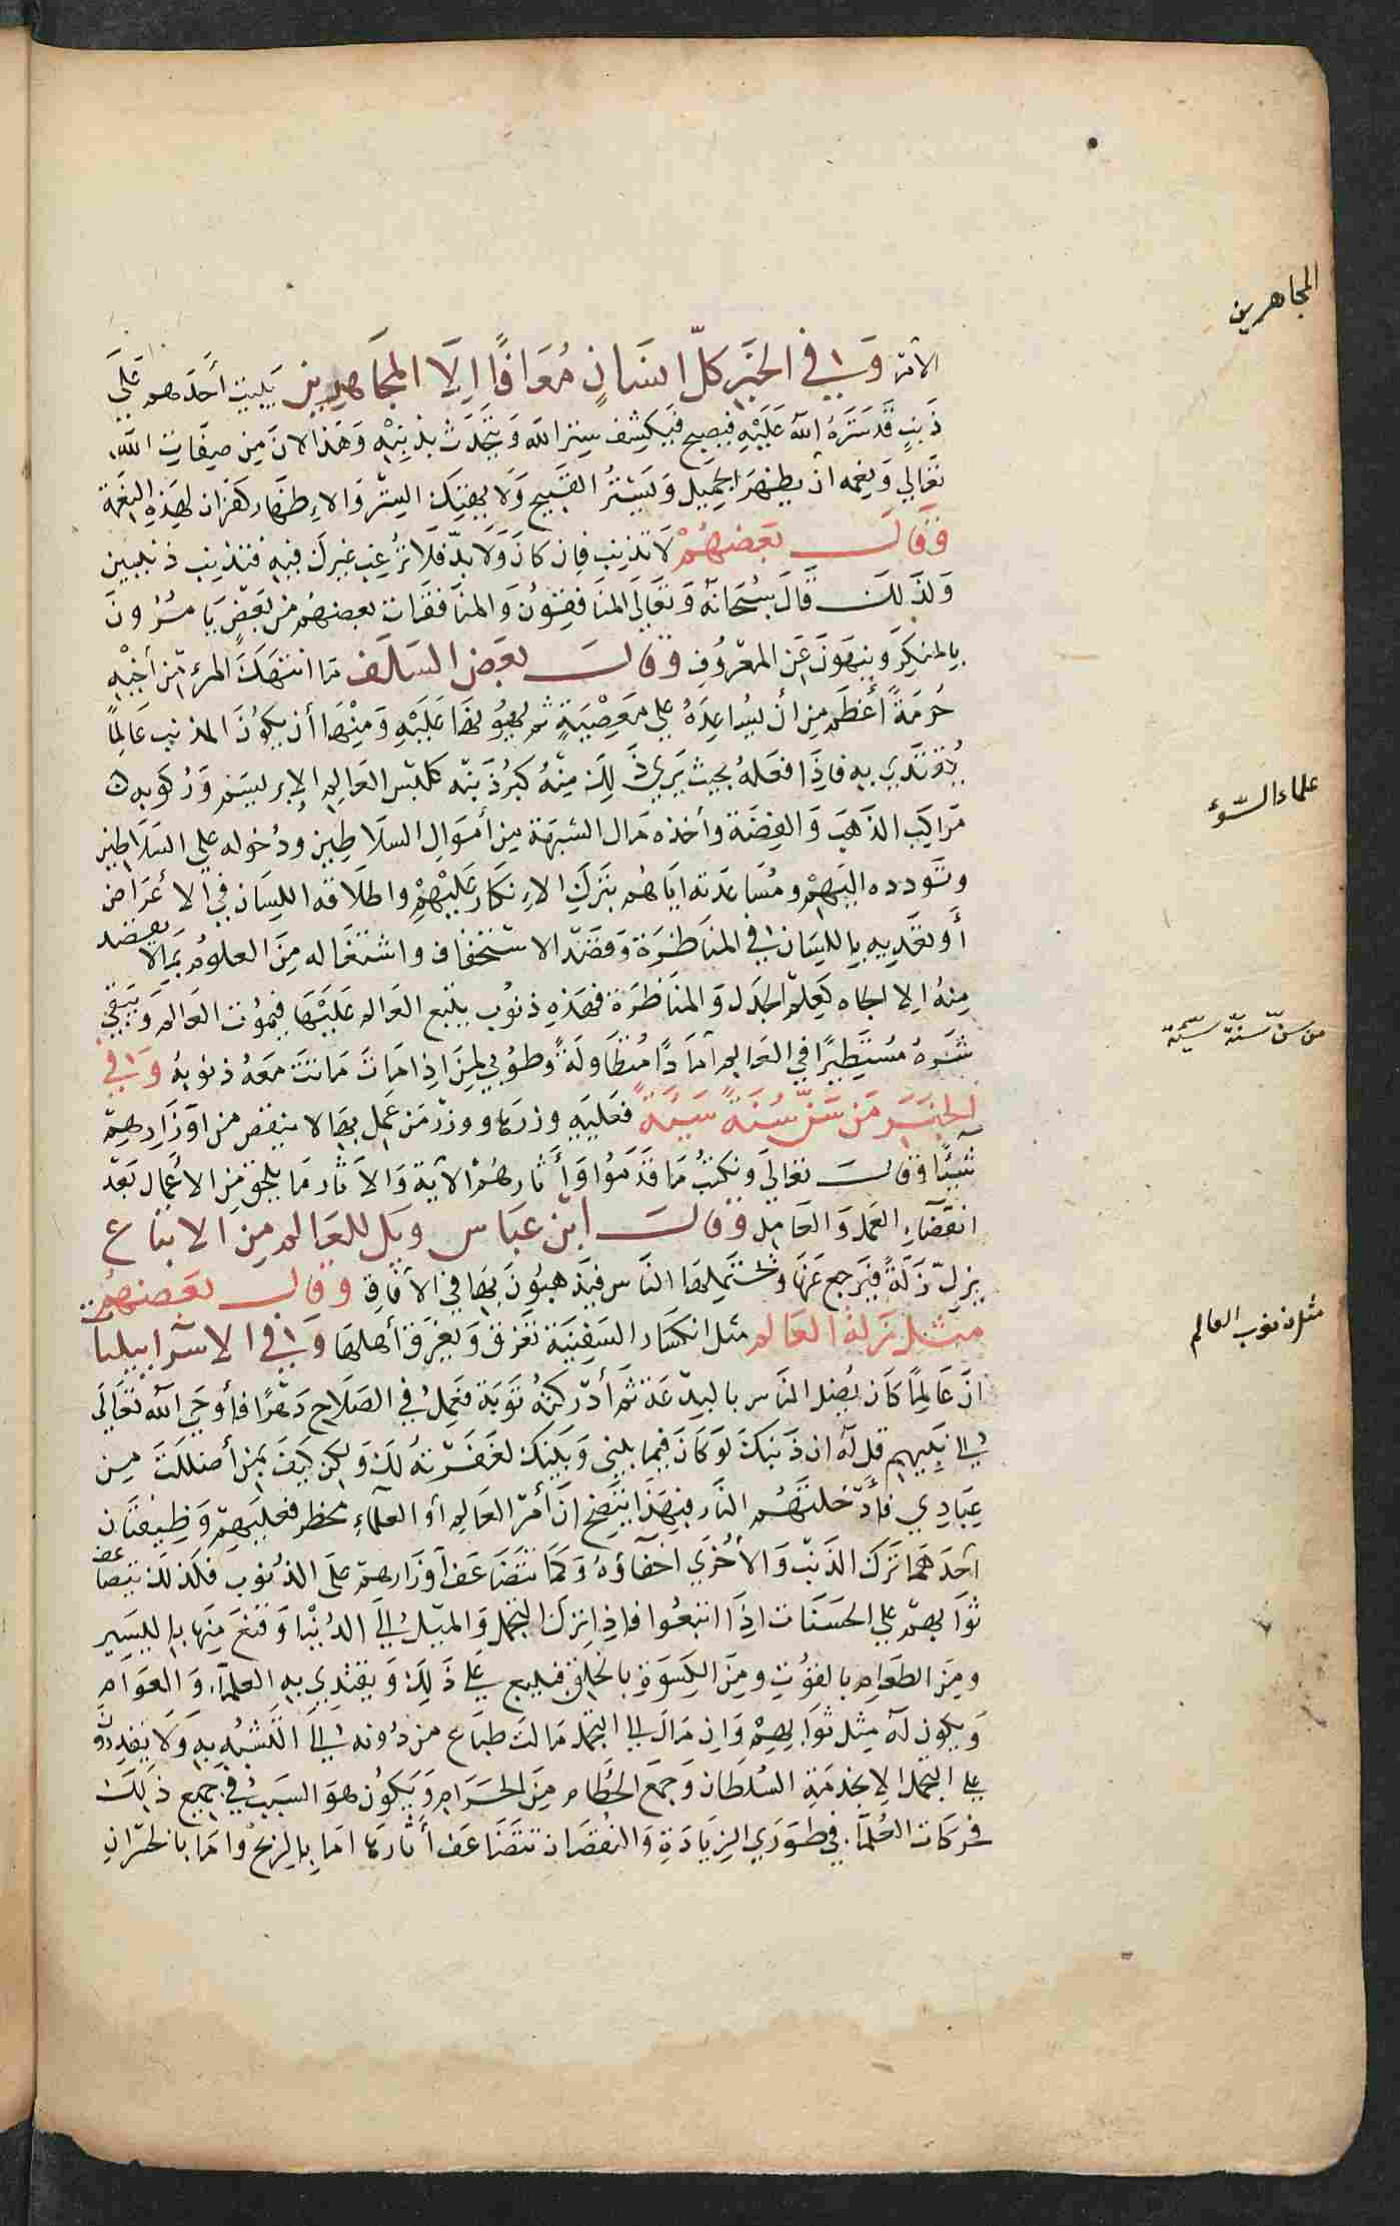 المجاهرين
الأمر وفي الخبر كلّ انسَانٍ مُعَافًا إلَّا المجَاهِرين يَبيت أحَدهم علَى
ذَنبٍ قد سَتَرَهُ الله عَلَيْهِ فيصبح فيَكشِف سِترَ الله وَيتحَدّث بذنبِهْ وَهَذا لانَ مِن صِفَاتِ الله
تعَالي وَنِعَمه ان يظهَر الجَميل وَيَستُرُ القَبيح وَلا يهتِك السِتْر وَالإظهَار كفران لهَذِهِ النِعْمَة
وَقالَ بعَضهُمْ لَا تذنِب فان كانَ وَلَا بدّ فَلَا ترُغِب غيرَك فيهِ فتذنِب ذنبَين
وَلذَلكَ قالَ سُبْحَانهُ وَتعَالَى المنَافِقوُن وَالمنَافقَات بعضهُم مِن بَعْضٍ يَامُرُونَ
بِالمنكَرِ وَينهَونَ عَنِ المعْرُوفِ وَقالَ بعَض السَلَف مَا انتهَكَ المرءُ مِن أخيْهِ
حُرمَةً أعْظَم مِن أنْ يسَاعِدَهُ على مَعصْيَةٍ ثم يهوُنهَا عَلَيْهِ وَمِنْهَا أن يكوُنَ المذنِب عَالِمًا
علماء السّوء
يُقتَدَي بِهِ فاذَا فعَلَهُ بحيث يَرَي ذَلِكَ مِنْهُ كبرُ ذَنبهْ كلبْس العَالِم الإبريسَم وَرُكوُبه
مَرَاكِبَ الذَهَب وَالفِضَة وأخذه مَال الشبهَة مِن أموَالِ السلَاطِين ودُخوله على السَلَاطِين
وتَودده إليَهِمْ ومُسَاعَدَته ايَاهُم بتَركِ الإنكَارِ عَلَيْهِمْ واطلَاقه اللِسَان في الأعْرَاض
أو تعَديهِ بِاللِسَان في المنَاظرَة وَقصَدْ الاستخفَاف واشتغَاله مِنَ العلوُم بمَا لا يقصد
من سنّ سنّة سيّئة
مِنهُ الا الجاه كعِلْم الجدَل وَالمنَاظَرَة فهَذِهِ ذنوُب يتبع العَالم عَلَيْهَا فيموُت العَالِم وَيبقي
شَرهُ مُسْتَطيرًا في العَالِم آمَادًا مُتَطَاولَةً وَطُوبي لِمَن اذا مَاتَ مَاتَت مَعَهُ ذنوبهُ وَفي
الخبَر مَنْ سَنّ سُنَةً سَيئَةً فعَليَهِ وزرَهَا ووزرْ مَن عَمِل بهَا لا ينقص مِن اوْزَارِهِمْ
شيْئًا وَقالَ تعَاليَ ونكتُبُ مَا قدمُوا وَآثَارهُمْ الآيَة وَالآثَار مَا يلحَق مِن الأعْمال بَعْد
انقضَاء العَمل وَالعَامِل وَقالَ ابْن عَبَاس وَيل للعَالم مِن الاتبَاع
يزِلّ زَلَةً فيَرجع عَنهَا وَيحتَمِلهَا النَاس فيَذهَبوُنَ بِهَا في الآفَاقِ وَقالَ بعَضهُم
مثل ذنوب العالم
مَثَل زَلةُ العَالم مثل انكسَار السَفِينَة تغرَق وَيغرَق أهلهَا وَفي الاسرَائيليات
انَّ عَالِمًا كان يُضِل النَاس بالبِدْعَة ثم أدْركتهُ توَبَة فعَمِلَ في الصَلَاح دَهْرًا فأوحَي الله تعَالَى
الى نَبِيهِم قل لَهُ ان ذَنبكَ لَو كانَ فيمَا بيني وَبَينَك لغفَرْتهُ لكَ ولكِن كيَفَ بمَن أضللتَ مِن
عِبَادِي فأدْخلتَهُم النَار فبِهَذَا يتَضِح انَ أمْرَ العَالِم أو العلمَاءِ مخطر فعلَيهِمْ وَظِيفتَان
احَدهمَا ترَكَ الذَنْب وَالأخرَي اخفاؤهُ وَكمَا تتَضَاعَف أوْزَارهِمْ عَلَى الذنوُب فكذلكَ يتضاعف
ثوَابهِم على الحسَنَات اذَا اتبَعُوا فاذا ترَكَ التجَمل وَالميْلُ اليَ الدُنْيَا وَقنعَ مِنهَا بِاليَسِير
ومِنَ الطعَامِ بالقوُتِ ومِنَ الكِسَوَةِ بالخلِق فيتبع عَلي ذَلِكَ وَيقتدِي بِهِ العلمَاء وَالعوَام
وَيكون لَهُ مِثل ثوَابِهِمْ وَان مَالَ الي التجمل مَالتْ طبَاع مَن دُونه الى التشَبُه بِهِ وَلَا يَقدِرون
على التجمل الا بخدمَةِ السُلطَان وَجمع الحُطَام مِنَ الحَرَام وَيَكوُن هوَ السَبَبُ في جميع ذَلِكَ
فحركَات العُلمَاء في طَوَرَي الزِيَادَةِ وَالنقصَانِ تتَضَاعَف آثارهَا امَا بِالرِبحْ وامَا بالخسرَان